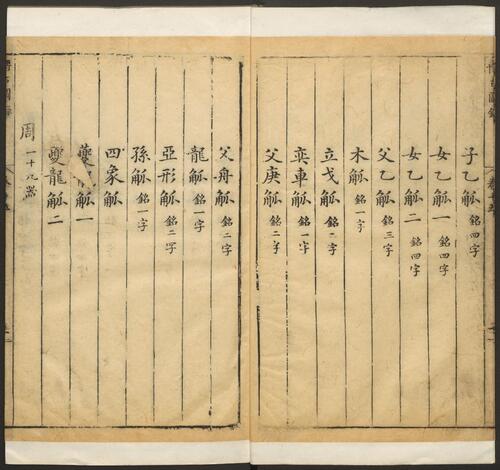 子乙觚 銘四字
女乙觚一 銘四字
女乙觚二 銘四字
父乙觚 銘三字
木觚 銘一字
立戈觚 銘二字
奕車觚 銘
父庚觚 銘二字
父舟觚 銘二字
龍觚 銘一字
亞形觚 銘二字
孫觚 銘一字
四象觚
夔 觚一
夔龍觚二
周 一十九器